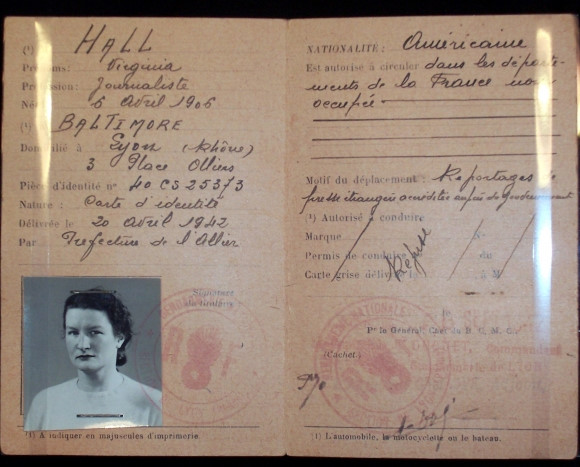 (¹) HALL
Prénoms: Virginia
Profession: Journaliste
Né 6 Avril 1906
(¹) BALTIMORE
Domicilié à Lyon (Rhône)
3 Place Ollier
Pièce d'identité nº 40 CS 25373
Nature: Carte d'identité
Délivrée le 20 avril 1942
Par Préfecture de l'Allier
Signature
du titulaire
(1) A indiquer en majuscules d'imprimerie.
NATIONALITÉ: Américaine
Est autorisé à circuler dans les départe-
ments de la France non
occupée
Motif du déplacement: Reportages de
presse étrangère accréditée auprès du gouvernement
(¹) Autorisé à conduire
Marque Nº
Permis de conduire du
Carte grise délivrée
Refusé
Pr le Général, Chef du
(Cachet)
(1) L'automobile, la motocyclette ou le bateau.